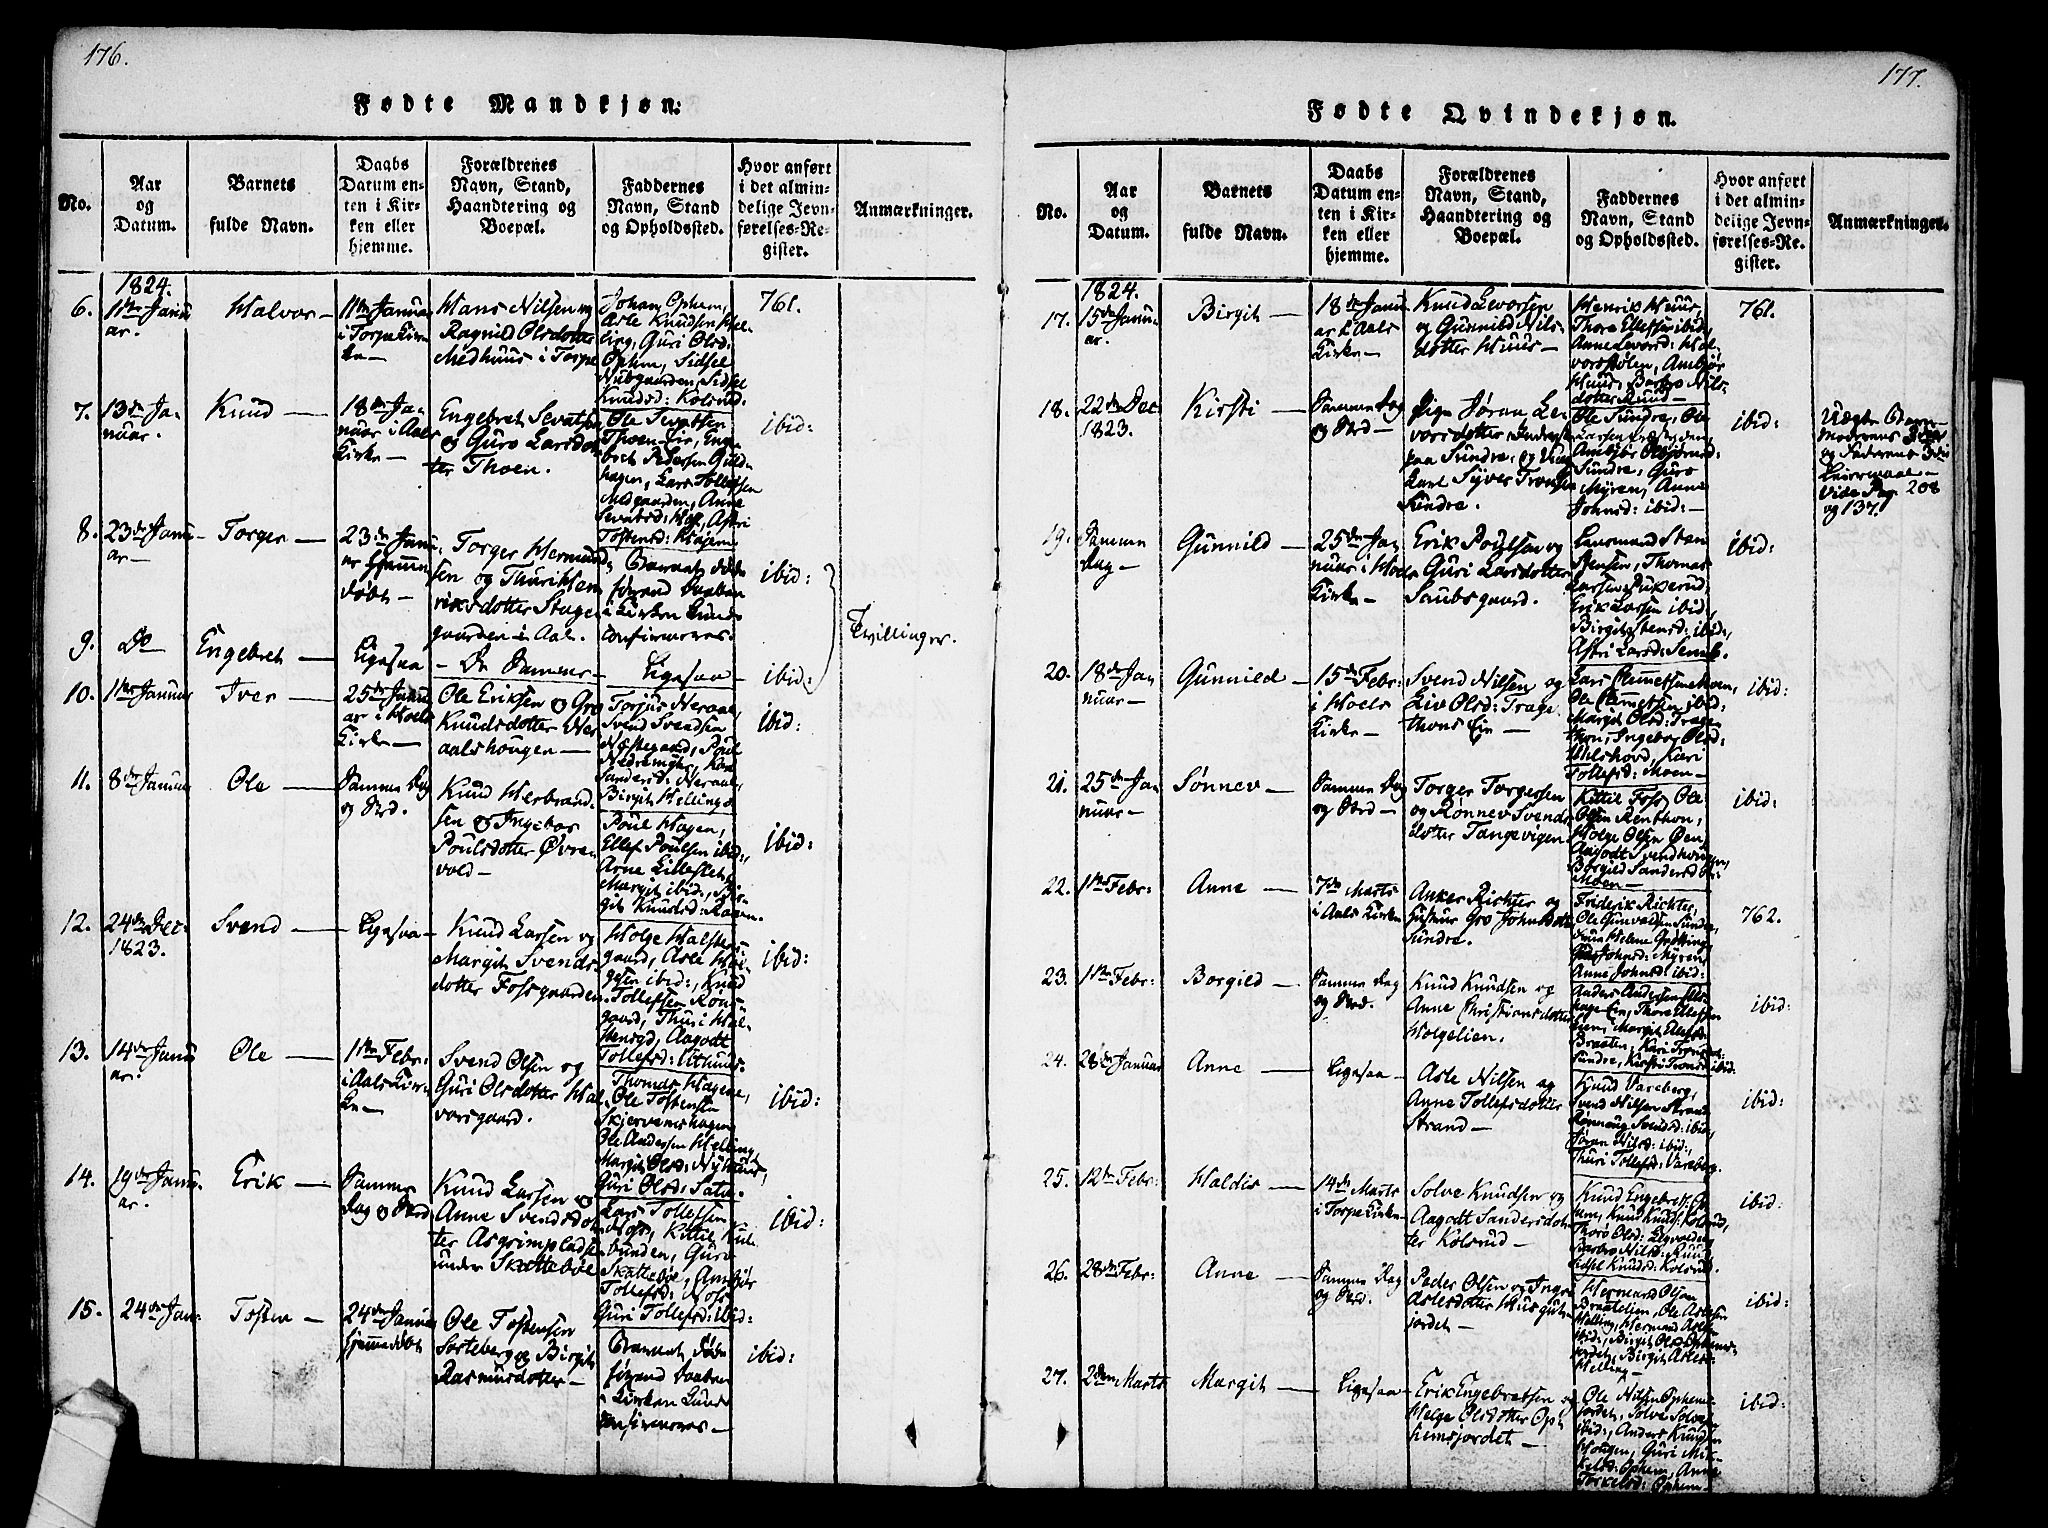 176.
Fødte Mandkjøn:
No.
Aar
og
Datum.
Barnets
fulde Navn.
Daabs
Datum en-
ten i Kir-
ken eller
hjemme.
Forældrenes
Navn, Stand,
Haandtering og
Boepæl.
Faddernes
Navn, Stand
og Opholdssted.
Hvor anført
i det almin-
delige Jevn-
førelses-Re-
gister.
Anmærkninger.
1824.
6.
11te Janu
ar.
Halvor
11te Januar
i Torpe Kir-
ke
Hans Nilsen og
Ragnild Olsdotter
Medhuus i Torpe
Johan Ophem,
Asle Knudsen
Guri Olsd:
Ophem, Sidsel
Nubgaarden, Sidsel
Knudsd: Kolsrud.
761.
7.
13de Ja-
nuar.
Knud
18de Ja-
nuar i Aals
Kirke
Engebret Sevatsen
og Guro Larsdot
ter Thoen.
Ole Sevatsen
Thoen Eie, Enge
bret Pedersen Guld
hagen, Lars Tollefsen
Medgaarden, Anne
Sevatsd: Astri
Tostensd:
ibid:
8.
23de Janu
ar
Torger
23de Janu
ar hjemme
døbt
Torger Hermund
sen og Thuri Hen
riksdotter Stage
gaarden i Aal.
Barnet døde
førend Daaben
i Kirken kunde
confirmeres.
ibid:
Tvillinger.
9.
Do
Engebret
Ligesaa
De Samme
Ligesaa
ibid:
10.
1ste Januar
Iver
25de Janu
ar i Hoels
Kirke
Ole Eriksen og Gro
Knudsdotter Ner
aalshougen
Torjus Neraal,
Svend Svendsen
Nestegaard, Poul
Nedremyhr, Kari
Sandersd: Neraal,
Birgit Hellings
ibid:
11.
8de Januar
Ole
Samme Dag
og Sted.
Knud Herbrand
sen og Ingebor
Poulsdotter Øvre
vold
Poul Hagen,
Ellef Poulsen ibid:,
Arne Lilleslet,
Margit ibid:, Bir
git Knudsd: Ravn.
ibid:
12.
24de Dec:
1823.
Svend
Ligesaa
Knud Larsen og
Margit Svends
dotter Fossgaarden
Holge Halsten
gaard, Asle Hol
gesen ibid:, Knud
Tollefsen Røns
gaard, Thuri Hal
stensgd, Aagodt
Tollefsd: Uthuus.
ibid:
13.
14de Janu
ar.
Ole
1ste Febr:
i Aals Kir
ke
Svend Olsen og
Guri Olsdotter Hal
vorsgaard.
Thomas Hagene,
Ole Tostensen
Skjervemshagen
Ole Andersen Helling
Margit Olsd: Nyhuus,
Guri Olsd: Sata.
ibid:
14.
19de Janu
ar.
Erik
Samme
Dag og Sted
Knud Larsen og
Anne Svendsdot
ter Asgrimpladsen
under Skattebøe
Lars Tollefsen
Noss, Kittil Kirke
bunden, Guro
Skattebøe, Ambjør
Tollefsd: Noss
Guri Tollefsd: ibid:
ibid:
15.
24de Jan:
Tosten
24de Januar
hjemmedøbt
Ole Tostensen
Sorteberg og Birgit
Rasmusdotter
Barnet døde
førend Daaben
i Kirken kunde
confirmeres
ibid:
177.
Fødte Qvindekjøn.
No.
Aar
og
Datum.
Barnets
fulde Navn.
Daabs
Datum en-
ten i Kir-
ken eller
hjemme.
Forældrenes
Navn, Stand,
Haandtering og
Boepæl.
Faddernes
Navn, Stand
og Opholdssted.
Hvor anført
i det almin-
delige Jevn-
førelses-Re-
gister.
Anmærkninger.
1824.
17.
15de Janu-
ar.
Birgit
18de Janu
ar i Aals
Kirke
Knud Levorsen
og Gunnild Nils-
dotter Huus
Henrik Huus,
Thore Ellefsen ibid:,
Anne Levorsd: Hal
vorsstølen, Ambjør
Huus, Barbro Nils
dotter Ruud
761.
18.
22de Dec
1823.
Kirsti
Samme Dag
og Sted
Pige Jøran Le
vorsdotter
paa Sundre, og Ung
karl Syver Tronsen
Sundre.
Ole Sundre, Ole
Larsen
Ambjør Olbjørnsd:
Sundre, Guro
Myren, Anne
Johnsd: ibid:
ibid:
Uægte Barn
Moderens 2den
og Faderens 3die
Leiermaal
Vide Pag. 208
og 137.
19.
Samme
Dag
Gunnild
25de Ja-
nuar i Hoels
Kirke
Erik Poulsen og
Guri Larsdotter
Saubsgaard.
Lensmand Sten
Stensen, Thomas
Larsen Pukerud,
Erik Larsen ibid:,
Birgit Stensd: ibid:,
Astri Larsd:
ibid:
20.
18de Ja-
nuar
Gunnild
15de Febr:
i Hoels
Kirke
Svend Nilsen og
Liv Olsd: Trage
thons Eie
Lars Clemetsen
Ole Clemetsen ibid:
Margit Olsd: Trage
thon, Ingebor Olsd:
Ulshord, Kari
Tollefsd: Moen
ibid:
21.
25de Ja
nuar
Sønnev
Samme Dag
og Sted
Torger Torgersen
og Rønnev Svends
dotter Tangevigen
Kittil Foss, Ole
Olsen Renthon,
Holge Olsen Øen,
Aagodt Svendhougen,
Borgild Sandersdotter
Moen
ibid:
22.
1ste Febr:
Anne
7de Marts
i Aals Kirke
Anker Richter og
Hustrue Gro Johnsdotter
Sundre.
Frederik Richter,
Ole Gunvaldsen Sundre,
Frue Helene
Johnsd: Myren
Anne Johnsd: ibid:
762.
23.
1ste Febr:
Borgild
Samme Dag
og Sted.
Knud Knudsen og
Anne Christiansdotter
Holgelien.
Anders Andersen
Eie, Thore Ellefsen
Margit Ellefsd:
Braaten, Kari Tronsd:
Sundre, Kirsti Tronsd: ibid:
ibid:
24.
28de Januar
Anne
Ligesaa
Asle Nilsen og
Anne Tollefsdotter
Strand
Knud Vareberg,
Svend Nilsen Strand
Rønnaug Svendsd: ibid:,
Jøran Nilsd: ibid:,
Thuri Tollefsd: Vareberg.
ibid:
25.
12te Febr:
Haldis
14de Marts
i Torpe Kirke
Solve Knudsen og
Aagodt Sandersdot
ter Kolsrud
Knud Engebrets: Op
hem, Knud Knuds: Kolsrud,
Thoro Olsd:
Barbro Nilsd: Ruud,
Sidsel Knudsd: Kolsrud.
ibid:
26.
28de Febr:
Anne
Samme Dag
og Sted.
Peder Olsen og Inger
Aslesdotter
jordet
Hermand Olsen
Braatelien, Ole Aslesen
Helling, Hermand Asles:
ibid:, Birgit Olsd: Ophems-
jordet, Birgit Aslesd:
Helling
ibid:
27.
2den Marts
Margit
Ligesaa
Erik Engebretsen og
Helge Olsdotter Op
hemsjordet
Ole Nilsen Ophems
jordet, Solve Solves:
ibid:, Anders Knudsen
Hougen, Guri Mik
kelsd: Ophem, Anne
Torkelsd: Ophem
ibid: